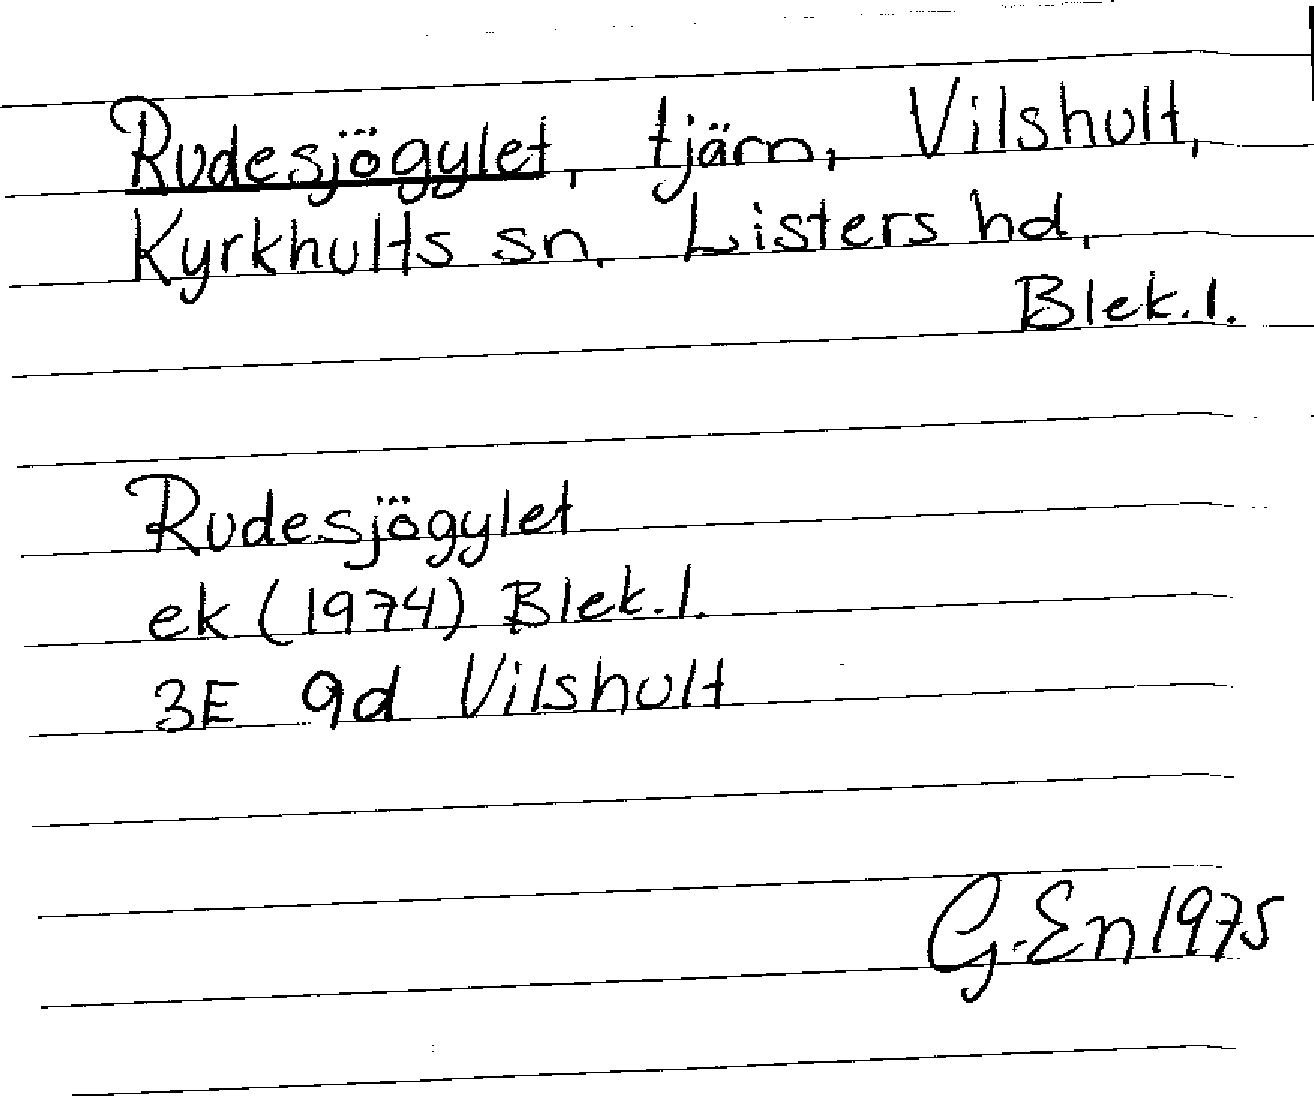 Rudesjögylet, tjärn, Vilshult,
Kyrkhults sn, Listers hd,
Blek. l.
Rudesjögylet
ek (1974) Blek. l.
3E 9d Vilshult
G. En 1975